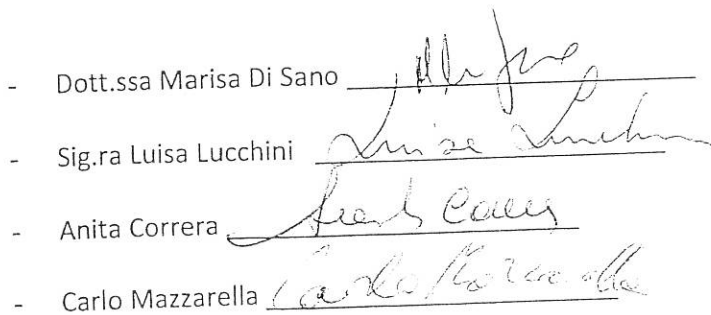 - Dott.ssa Marisa Di Sano
- Sig.ra Luisa Lucchini Luisa Lucchini
- Anita Correra
- Carlo Mazzarella Carlo Mazzarella